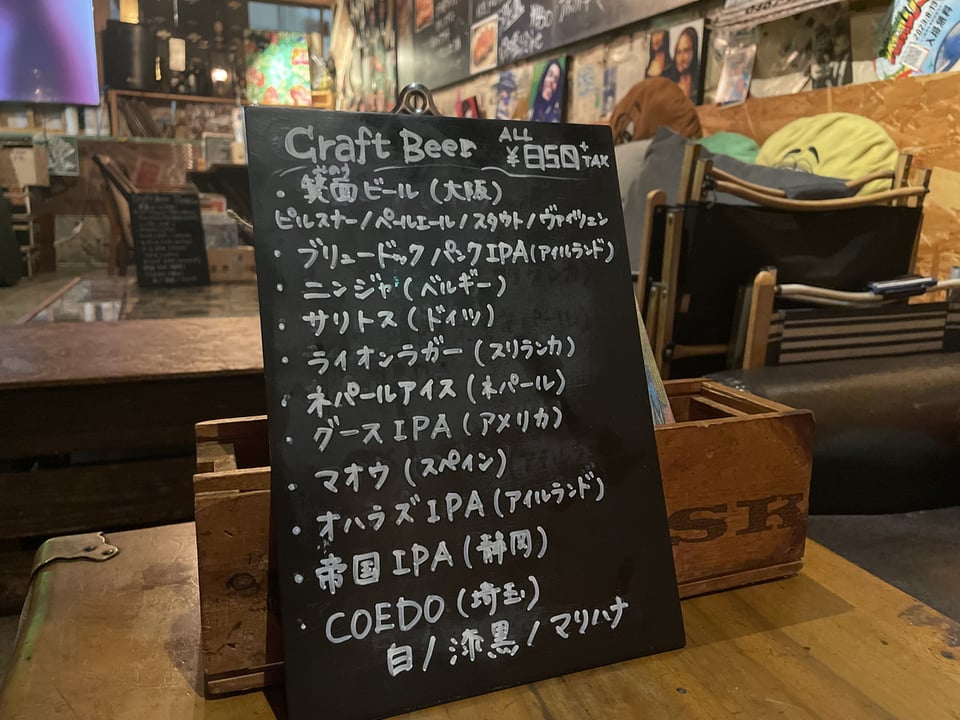 Craft Beer ALL ¥850+TAX
みのう
・箕面ビール(大阪)
ピルスナー/ペールエール/スタウト/ヴァイツェン
・ブリュードック/パンクIPA(アイルランド)
・ニンジャ(ベルギー)
・サリトス(ドイツ)
・ライオンラガー(スリランカ)
・ネパールアイス(ネパール)
・グースIPA(アメリカ)
・マオウ(スペイン)
・オハラズIPA(アイルランド)
・帝国IPA(静岡)
・COEDO(埼玉)
白/漆黒/マリハナ
SK